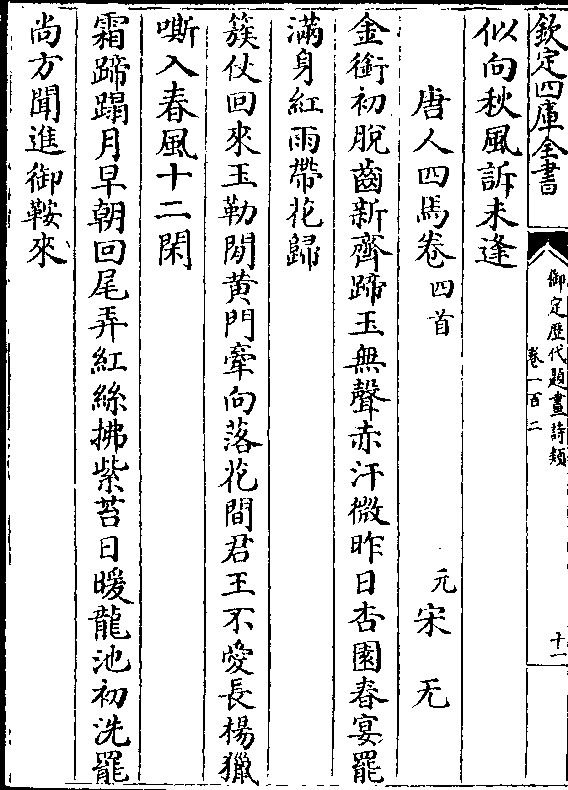 欽定四庫全書
御定歷代題畫詩類
卷一百二
十一
似向秋風訴未逢
唐人四馬卷四首
元宋无
金銜初脫齒新齊蹄玉無聲赤汗微昨日杏園春宴罷
滿身紅雨帶花歸
簇仗回來玉勒閒黃門牽向落花間君王不愛長楊獵
嘶入春風十二閑
霜蹄蹋月早朝回尾弄紅絲拂紫苔日暖龍池初洗罷
尚方聞進御鞍來